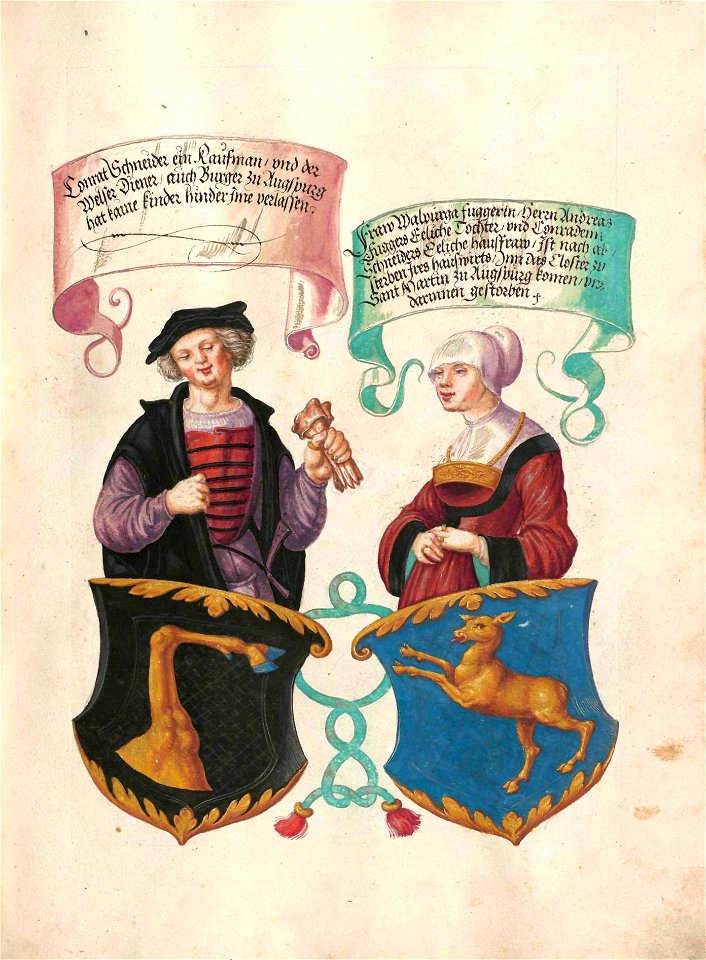 Conrat Schneider ein Kaufman / vnd der
Welser Diener / auch Burger zu Augspurg
hat kaine kinder hinder jme verlassen.
Fraw Walpurga fuggerin / Herrn Andreas
Fuggers Eeliche Tochter / vnd Conraden
Schneiders Eeliche hausfraw / Ist nach ab,
sterben jres hauswirts / Jnn das Closter zu
Sant Martin zu Augspurg komen / vnd
darinnen gestorben